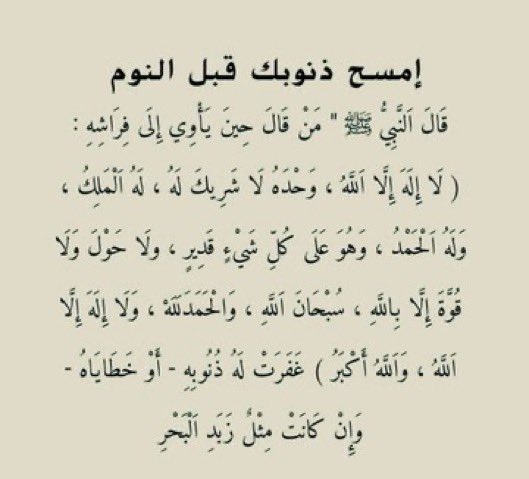 إمسح ذنوبك قبل النوم
قَالَ اَلنَّبِيُّ ﷺ " مَنْ قَالَ حِينَ يَأْوِي إِلَى فِرَاشِهِ :
( لَا إِلَهَ إِلَّا اَللَّهُ ، وَحْدَهُ لَا شَرِيكَ لَهُ ، لَهُ اَلْمَلِكُ ،
وَلَهُ اَلْحَمْدُ ، وَهُوَ عَلَى كُلِّ شَيْءٍ قَدِيرٍ ، ولَا حَوْلَ وَلَا
قُوَّةَ إِلَّا بِاللَّهِ ، سُبْحَانَ اَللَّهِ ، وَالْحَمَدَلَلَهْ ، وَلَا إِلَهَ إِلَّا
اَللَّهُ ، وَاَللَّهُ أَكْبَرُ ) غَفَرَتْ لَهُ ذُنُوبِهِ - أَوْ خَطَايَاهُ -
وَإِنْ كَانَتْ مِثْلُ زَبَدِ اَلْبَحْرِ